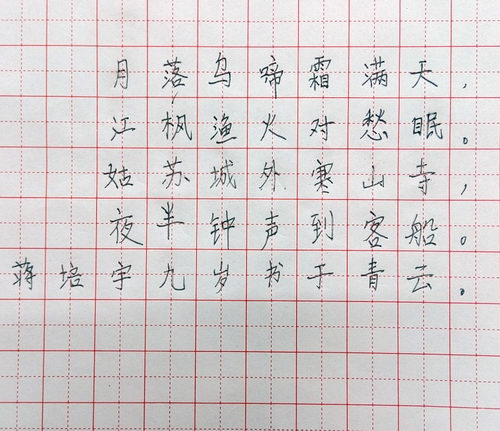 月落乌啼霜满天，
江枫渔火对愁眠。
姑苏城外寒山寺，
夜半钟声到客船。
蒋培宇九岁书于青云。